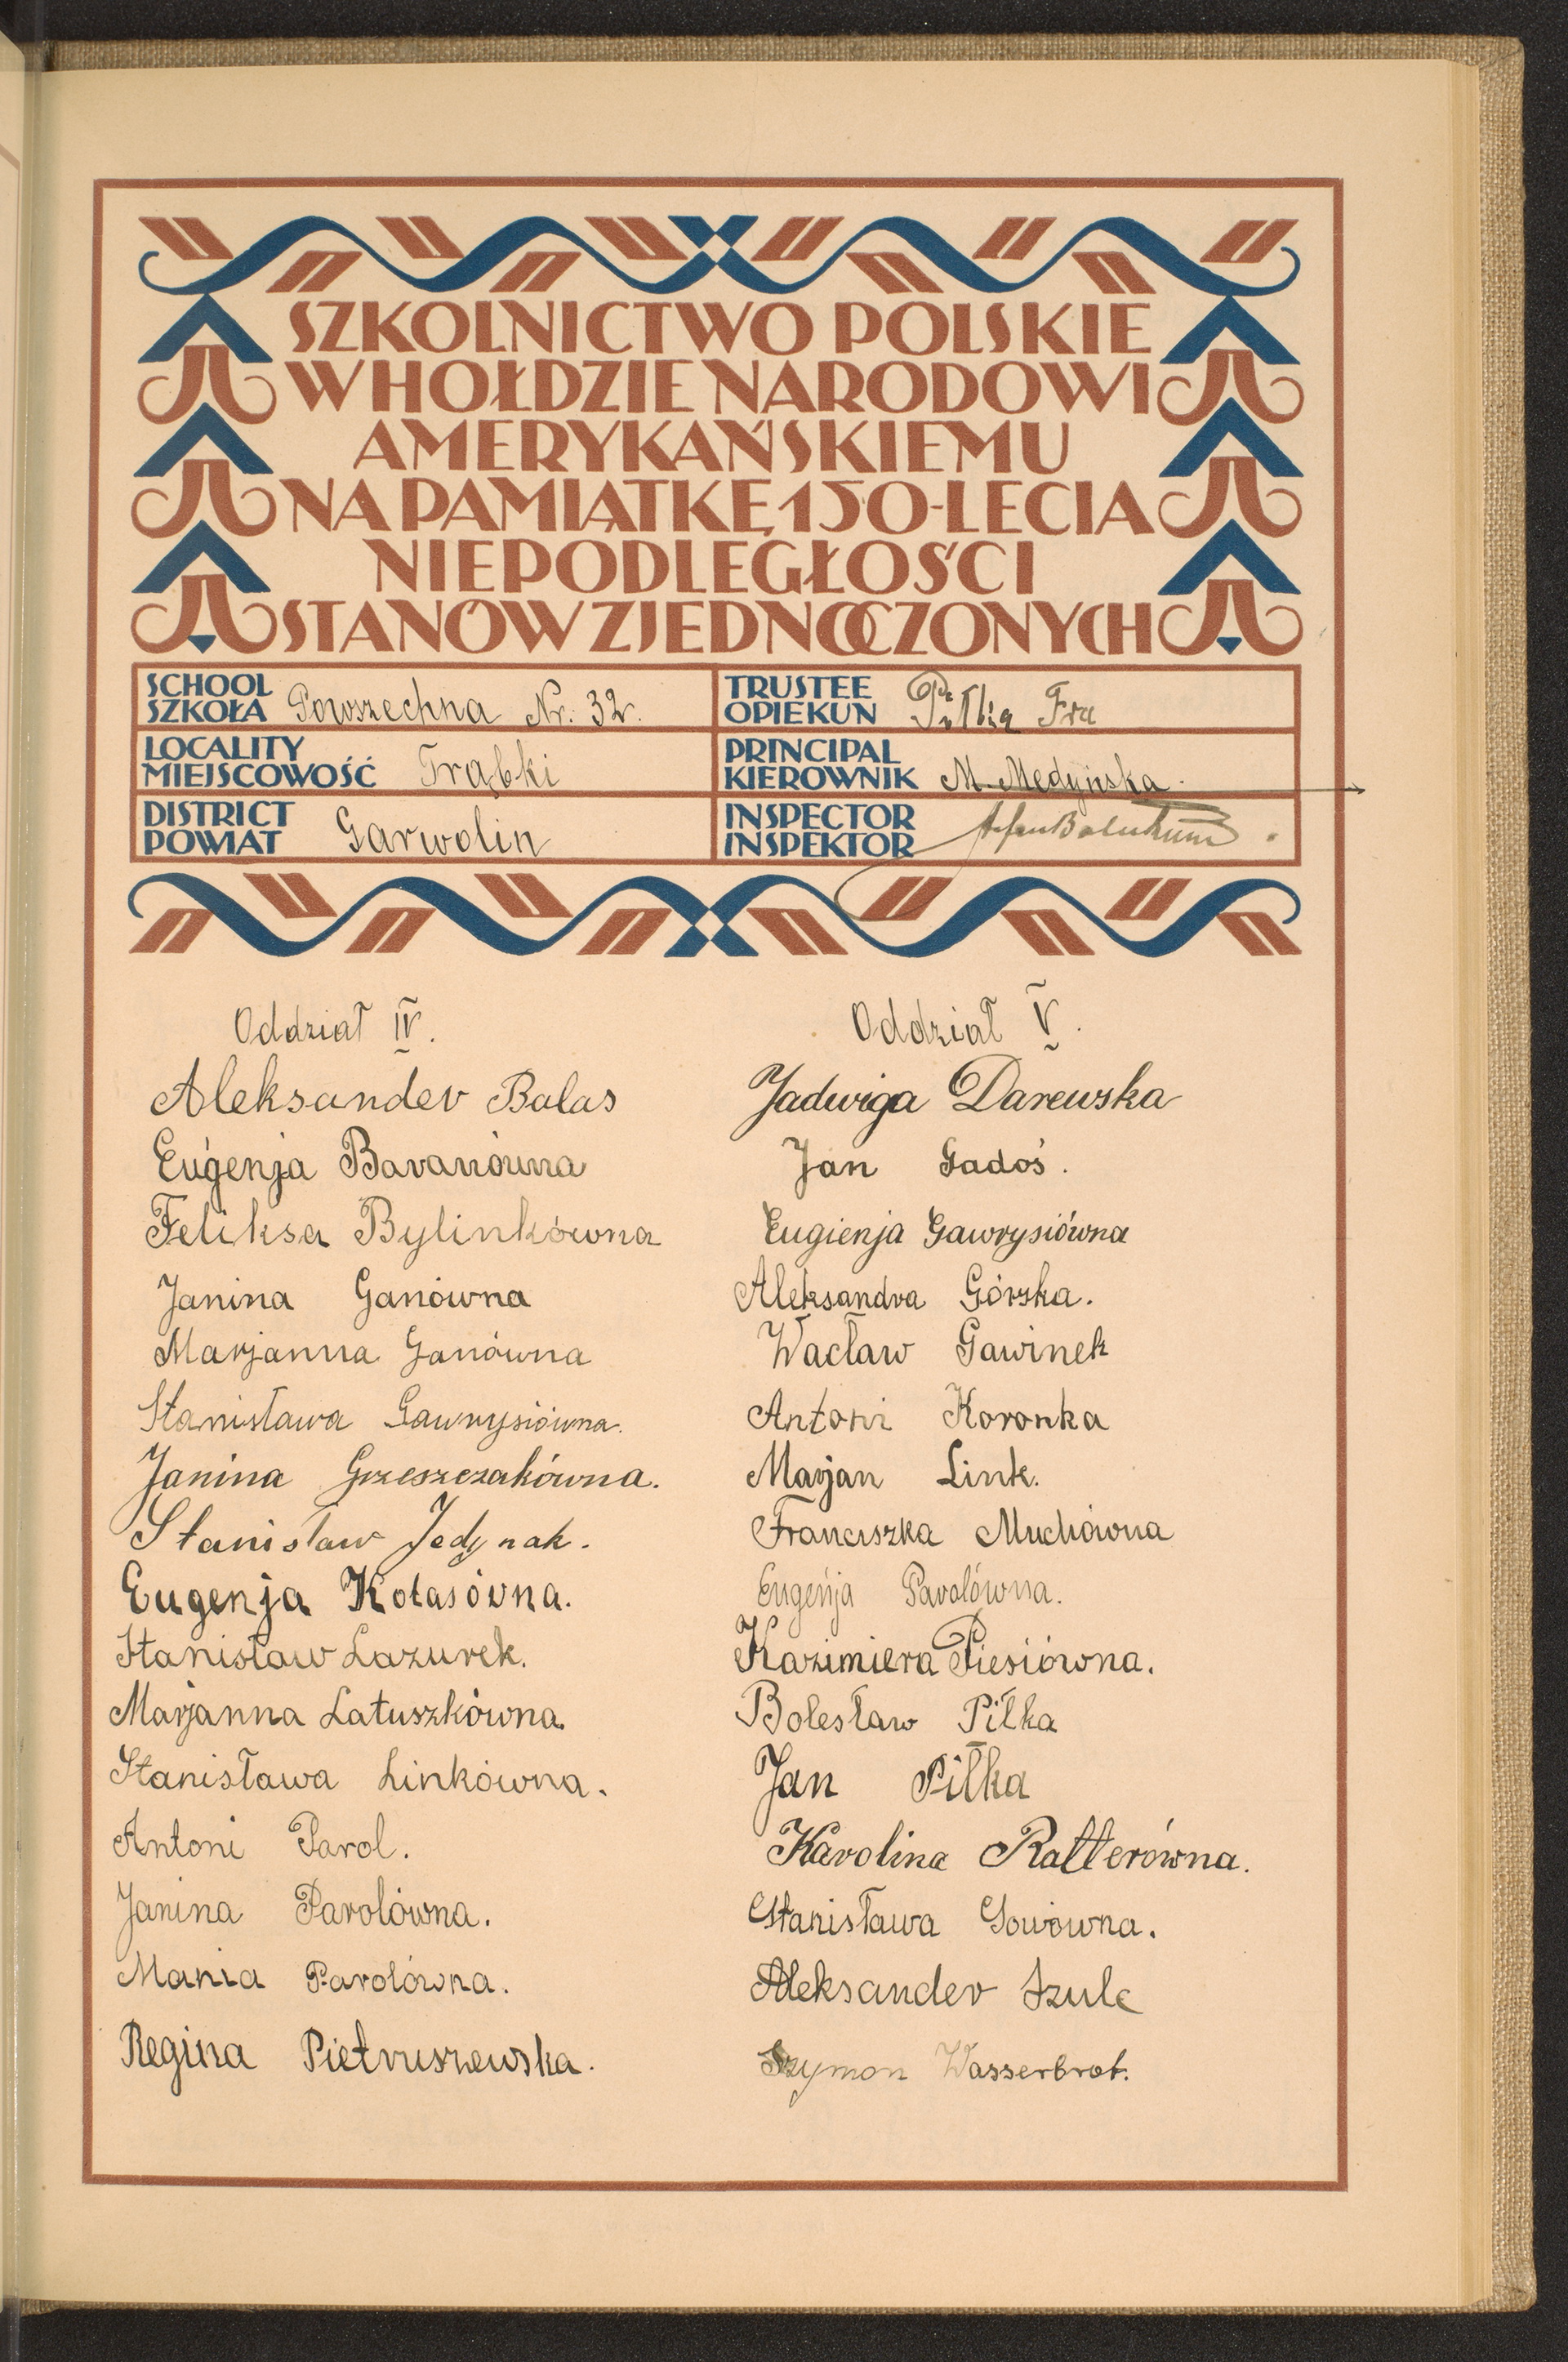 SZKOLNICTWO POLSKIE
W HOŁDZIE NARODOWI
AMERYKAŃSKIEMU
NA PAMIĄTKĘ 150-LECIA
NIEPODLEGŁOŚCI
STANÓW ZJEDNOCZONYCH
SCHOOL
SZKOŁA Powszechna Nr. 32.
LOCALITY
MIEJSCOWOŚĆ Trąbki
DISTRICT
POWIAT Garwolin
TRUSTEE
OPIEKUN Piłka Fra
PRINCIPAL
KIEROWNIK M. Medyńska.
INSPECTOR
INSPEKTOR
Oddział IV.
Aleksander Balas
Eugenja Baranówna
Feliksa Bylinkówna
Janina Ganówna
Marjanna Ganówna
Stanisława Gawrysiówna.
Janina Grzeszczakówna.
Stanisław Jedynak.
Eugenja Kotasówna.
Stanisław Lazurek.
Marjanna Latuszkówna.
Stanisława Linkówna.
Antoni Parol.
Janina Parolówna.
Mania Parolówna.
Regina Pietruszewska.
Oddział V.
Jadwiga Darewska
Jan Gadoś.
Eugienja Gawrysiówna
Aleksandra Górska.
Wacław Gawinek
Antoni Koronka
Marjan Link.
Franciszka Muchówna
Eugenja Parolówna.
Kazimiera Piesiówna.
Bolesław Piłka
Jan Piłka
Karolina Ratterówna.
Stanisława Sowówna.
Aleksander Szulc
Szymon Wasserbrot.